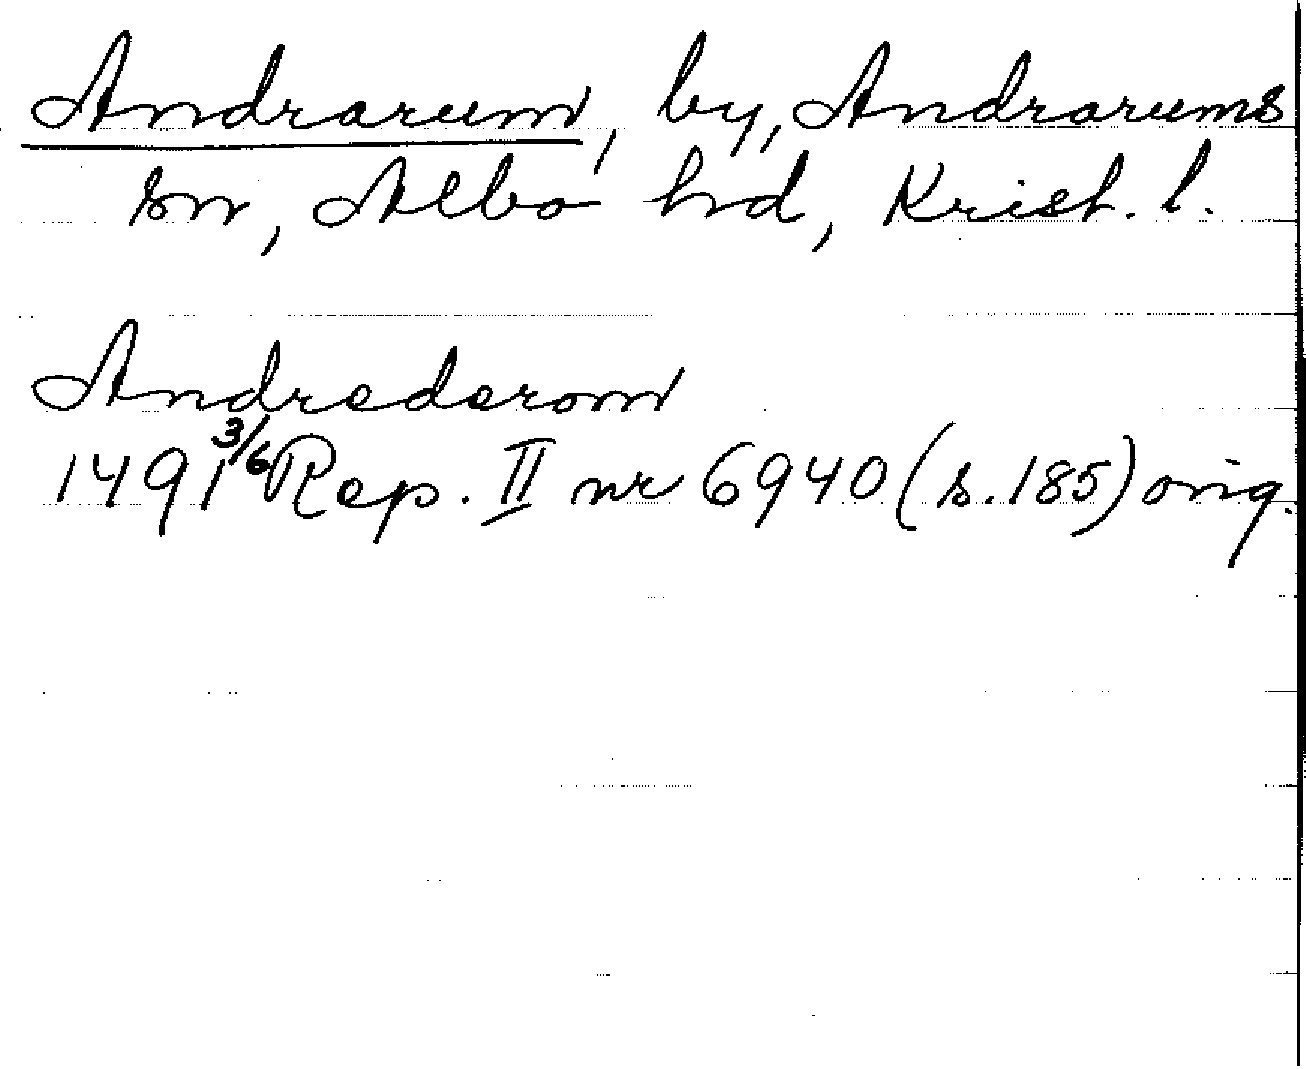 Andrarum, by, Andrarums
sn, Albo hd, Krist. l.
Andrederom
1491 3/6 Rep. II nr 6940 (s. 185) orig.